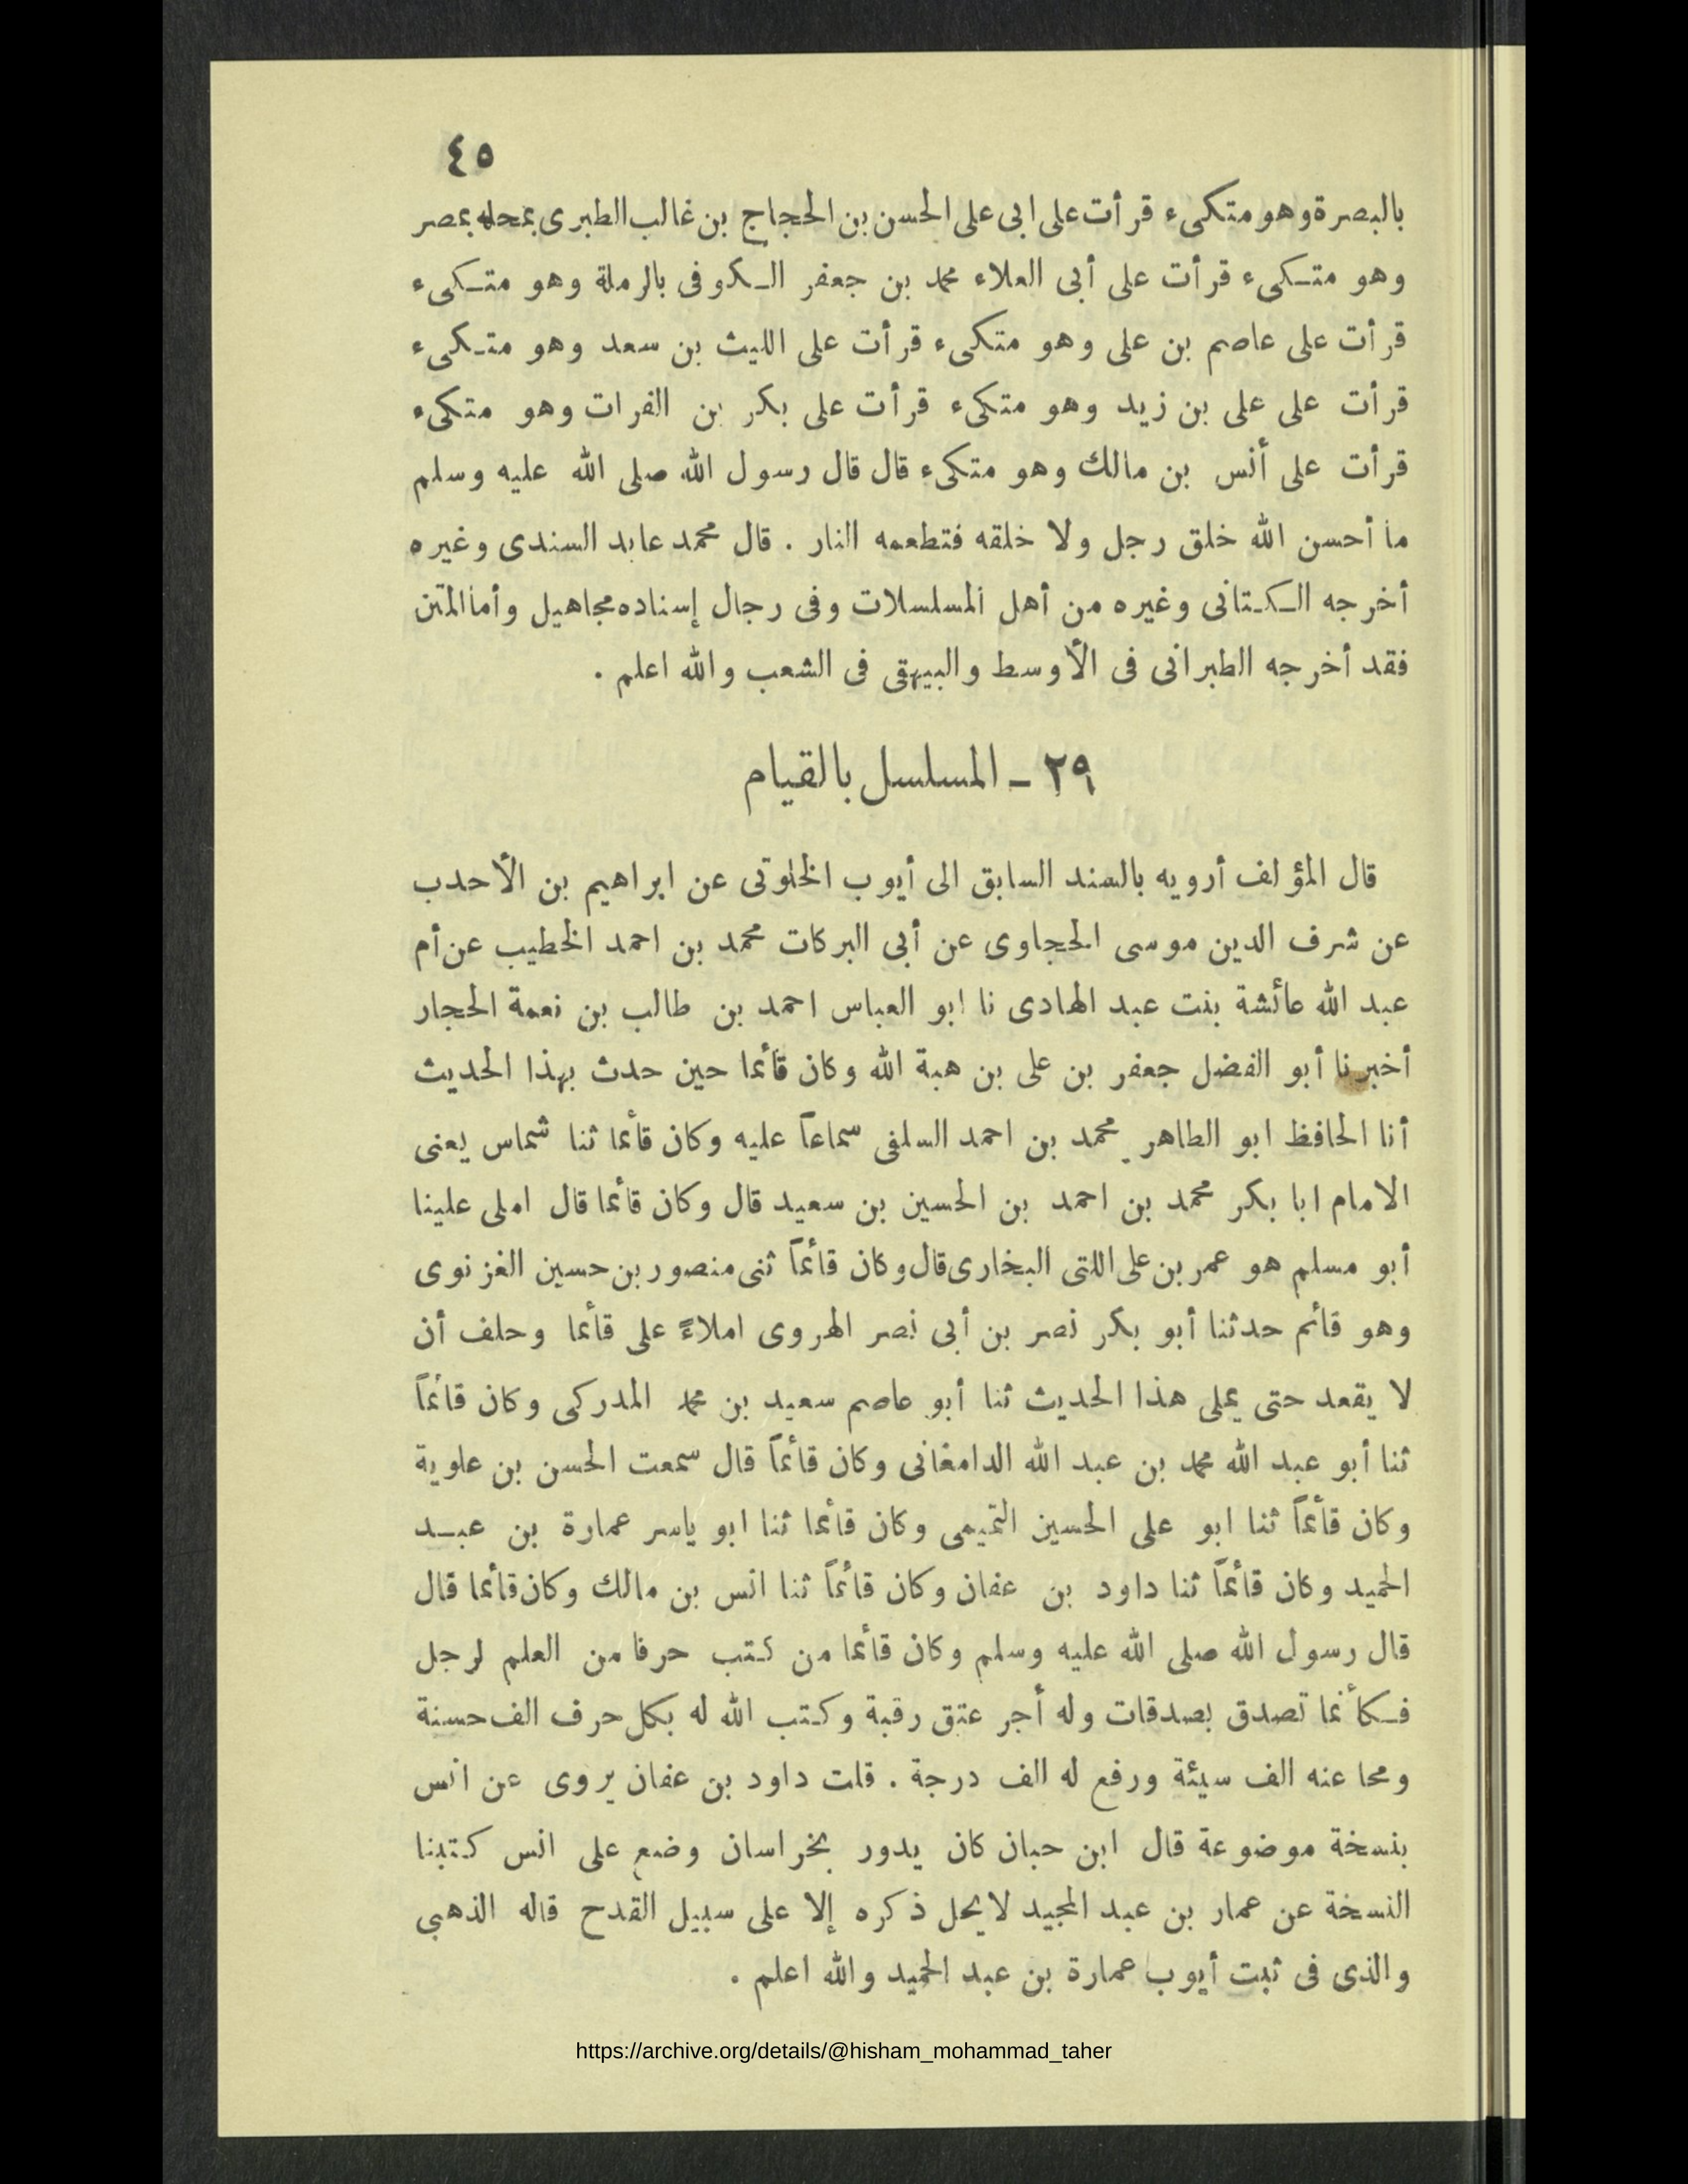 ٤٥
بالبصرة وهو متكىء قرأت على ابى على الحسن بن الحجاج بن غالب الطبرى بمحله بمصر
وهو متكىء قرأت على أبى العلاء محمد بن جعفر الكوفى بالرملة وهو متكىء
قرأت على عاصم بن على وهو متكىء قرأت على الليث بن سعد وهو متكىء
قرأت على على بن زيد وهو متكىء قرأت على بكر بن الفرات وهو متكىء
قرأت على أنس بن مالك وهو متكىء قال قال رسول الله صلى الله عليه وسلم
ما أحسن الله خلق رجل ولا خلقه فتطعمه النار . قال محمد عابد السندى وغيره
أخرجه الكتانى وغيره من أهل المسلسلات وفى رجال إسناده مجاهيل وأما المتن
فقد أخرجه الطبرانى فى الأوسط والبيهقى فى الشعب والله اعلم .
٢٩ – المسلسل بالقيام
قال المؤلف أرويه بالسند السابق الى أيوب الخلوتى عن ابراهيم بن الأحدب
عن شرف الدين موسى الحجاوى عن أبى البركات محمد بن احمد الخطيب عن أم
عبد الله عائشة بنت عبد الهادى نا ابو العباس احمد بن طالب بن نعمة الحجار
أخبرنا أبو الفضل جعفر بن على بن هبة الله وكان قائما حين حدث بهذا الحديث
أنا الحافظ ابو الطاهر محمد بن احمد السلفى سماعاً عليه وكان قائما ثنا شماس يعنى
الامام ابا بكر محمد بن احمد بن الحسين بن سعيد قال وكان قائما قال املى علينا
أبو مسلم هو عمر بن على اللتى البخارى قال وكان قائماً ثنى منصور بن حسين الغزنوى
وهو قائم حدثنا أبو بكر نصر بن أبى نصر الهروى املاءً على قائما وحلف أن
لا يقعد حتى يملى هذا الحديث ثنا أبو عاصم سعيد بن محمد المدركى وكان قائماً
ثنا أبو عبد الله محمد بن عبد الله الدامغانى وكان قائماً قال سمعت الحسن بن علوية
وكان قائماً ثنا ابو على الحسين التميمى وكان قائما ثنا ابو ياسر عمارة بن عبد
الحميد وكان قائماً ثنا داود بن عفان وكان قائماً ثنا انس بن مالك وكان قائما قال
قال رسول الله صلى الله عليه وسلم وكان قائما من كتب حرفا من العلم لرجل
فكأنما تصدق بصدقات وله أجر عتق رقبة وكتب الله له بكل حرف الف حسنة
ومحا عنه الف سيئة ورفع له الف درجة . قلت داود بن عفان يروى عن انس
بنسخة موضوعة قال ابن حبان كان يدور بخراسان وضع على انس كتبنا
النسخة عن عمار بن عبد المجيد لا يحل ذكره إلا على سبيل القدح قاله الذهبى
والذى فى ثبت أيوب عمارة بن عبد الحميد والله اعلم .
https://archive.org/details/@hisham_mohammad_taher